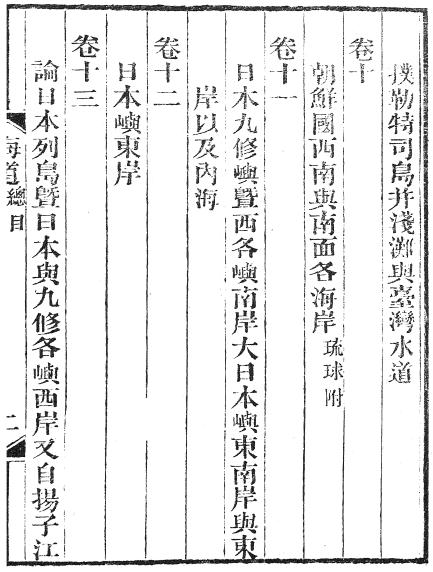 撲勒特司島井淺灘與臺灣水道
卷十
朝鮮國西南與南面各海岸琉球附
卷十一
日本九修嶼暨西各嶼南岸大日本嶼東南岸與東
岸以及內海
卷十二
日本嶼東岸
卷十三
論日本列島暨日本與九修各嶼西岸又自揚子江
海道總目
二